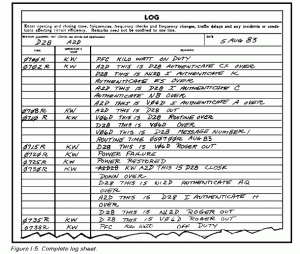 LOG
Enter opening and closing time, frequencies, frequency checks and frequency changes, traffic delays and any incidents or conditions affecting circuit efficiency. Remarks need not be confined to one line.
DATE
D28 A2D 5 AUG 83
0700R KW PFC KILO WATT ON DUTY
0702R KW A2D THIS IS D28 AUTHENTICATE CX OVER
D28 THIS IS N12D I AUTHENTICATE K
AUTHENTICATE RS OVER
A2D THIS IS D28 I AUTHENTICATE C
AUTHENTICATE NB OVER
A2D THIS IS V86D I AUTHENTICATE A OVER
0708R KW A2D THIS IS D28 OUT
0710R KW V86D THIS IS D28 ROUTINE OVER
D28 THIS IS V86D OVER
V86D THIS IS D28 MESSAGE NUMBER 1
ROUTINE TIME AUG 83
0715R KW D28 THIS IS V86D ROGER OUT
0720R KW POWER FAILURE
0725R KW POWER RESTORED
0730R KW A2D THIS IS D28 CLOSE
DOWN OVER
D28 THIS IS N12D AUTHENTICATE AQ
OVER
A2D THIS IS D28 I AUTHENTICATE H
OVER
D28 THIS IS N12D ROGER OUT
0735R KW D28 THIS IS V86D ROGER OUT
0738R KW PFC KILO WATT OFF DUTY
Figure I-5. Complete log sheet